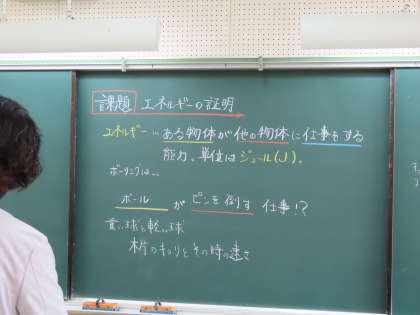 課題 エネルギーの証明
エネルギー…ある物体が他の物体に仕事をする
能力。単位はジュール(J)。
ボーリングは…
ボール が ピンを倒す 仕事!?
重い球と軽い球
木片のキョリとその時の速さ